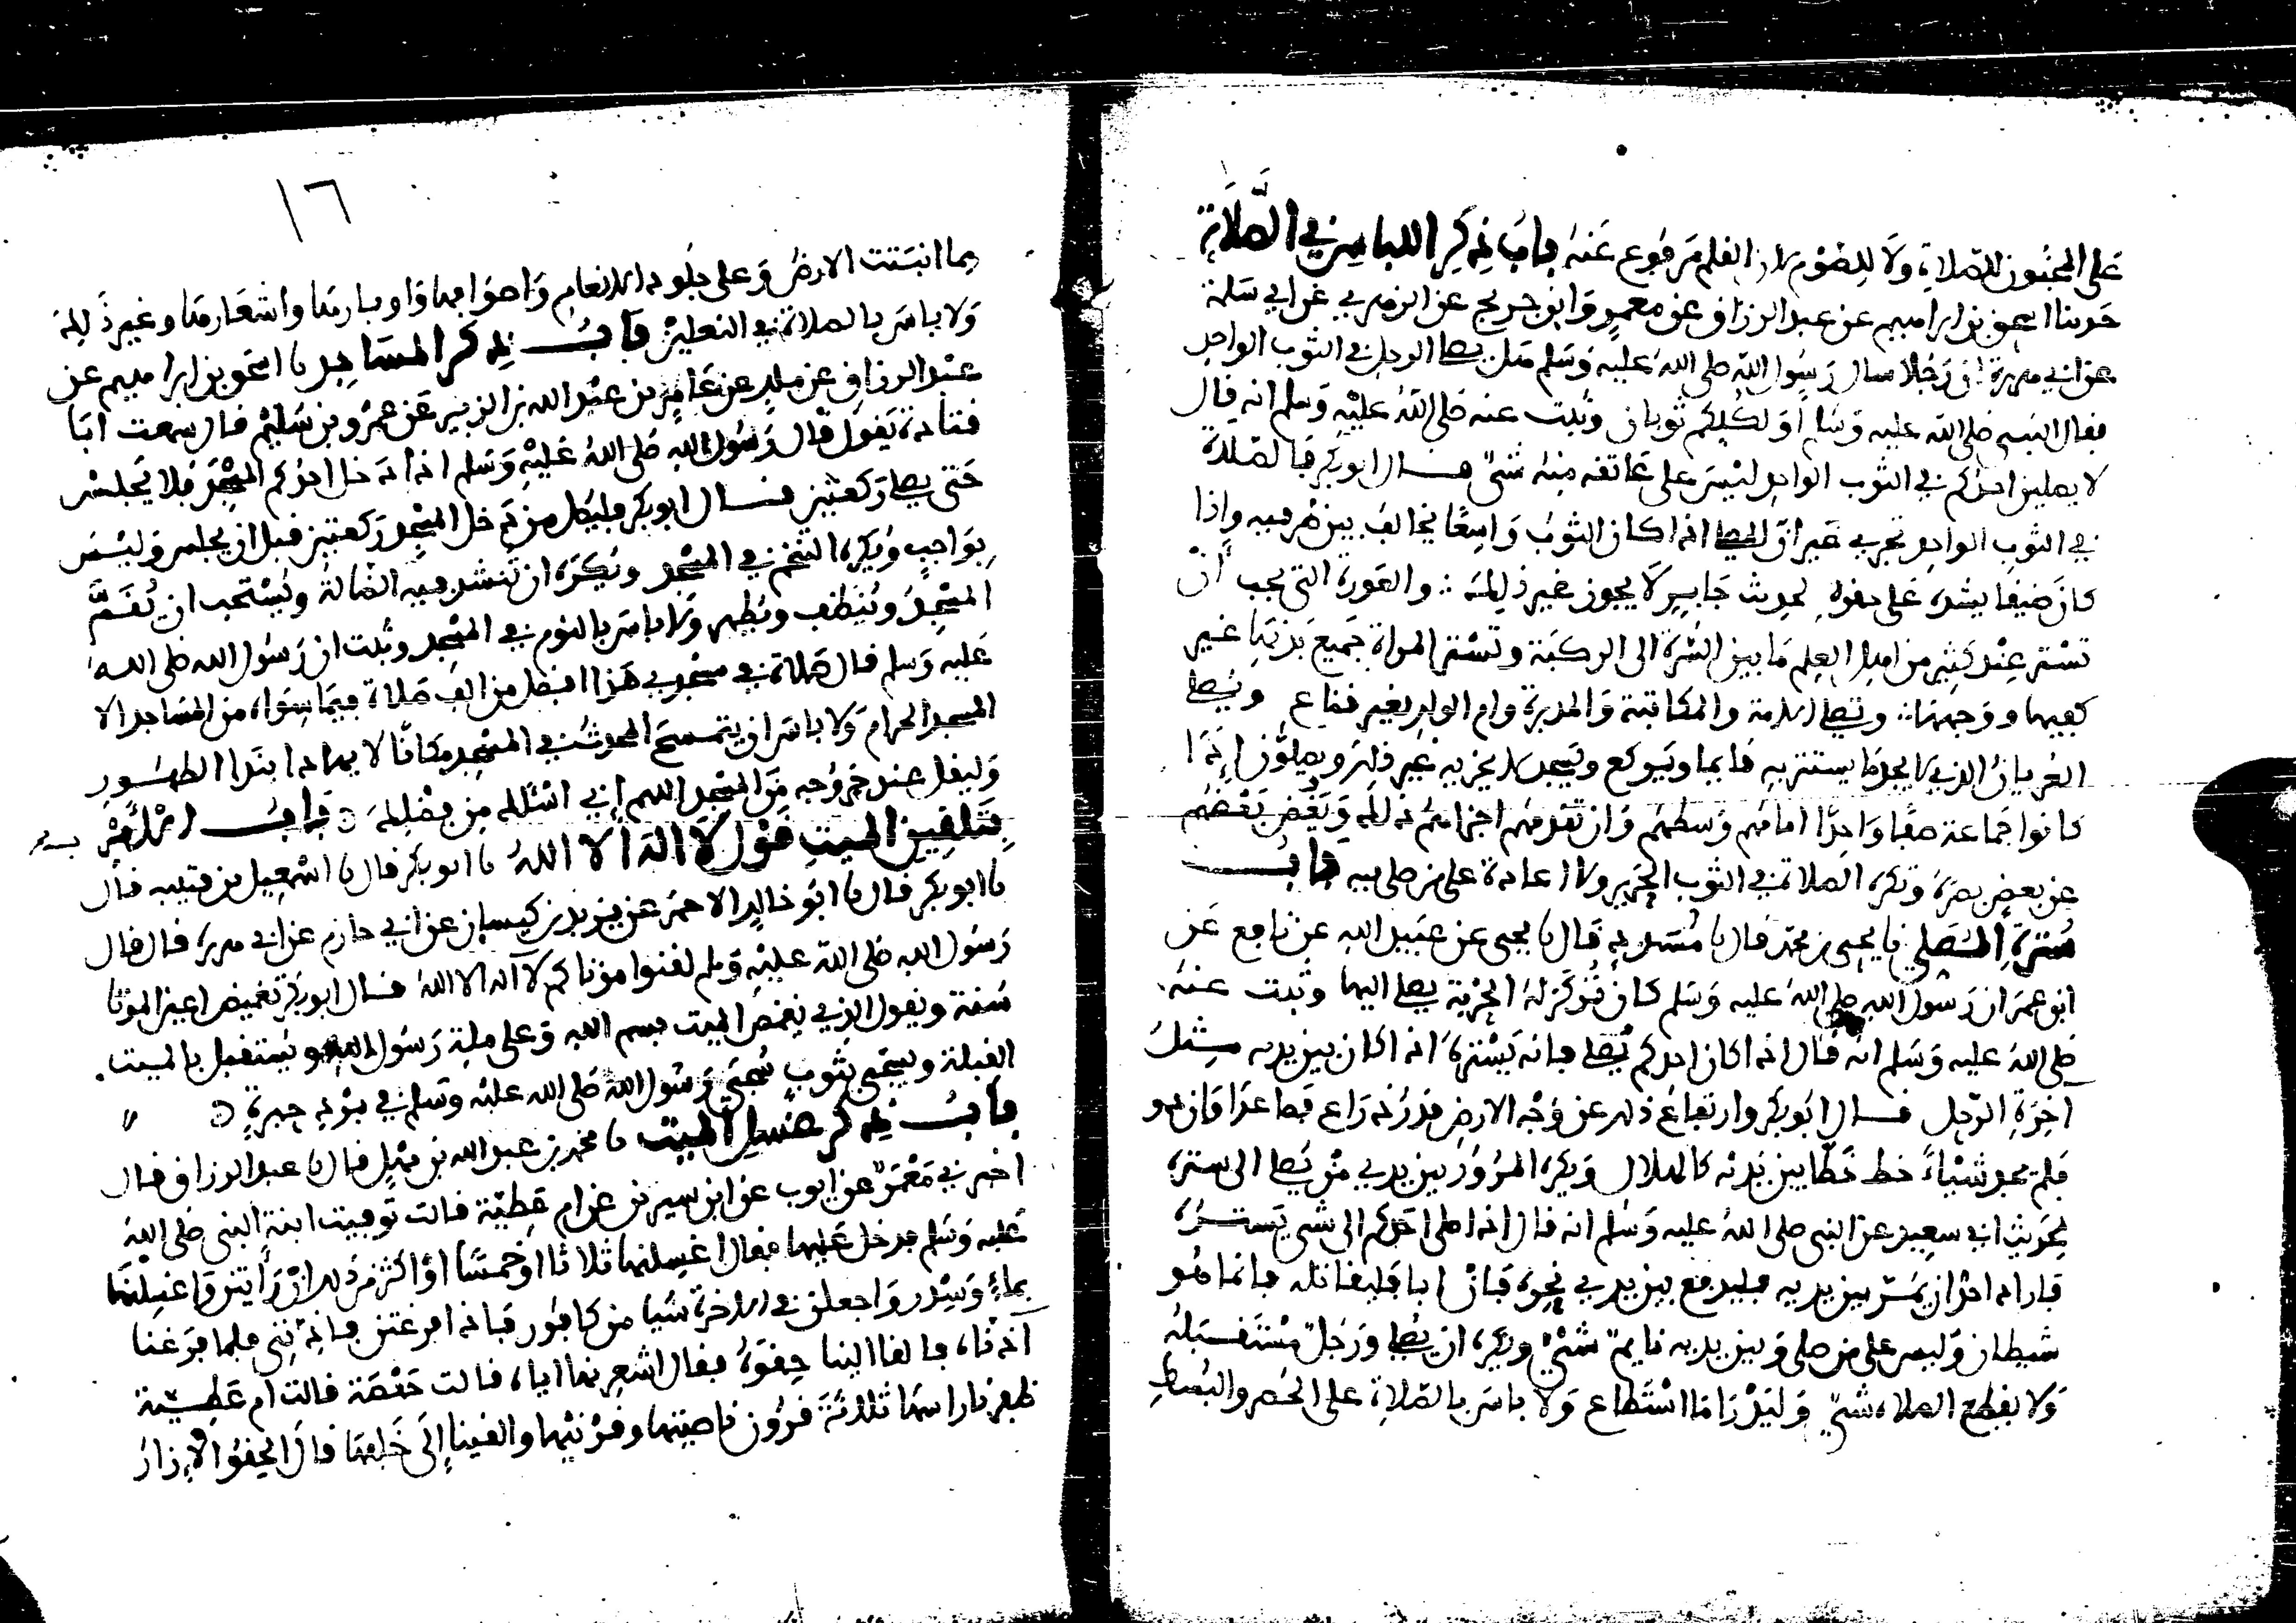 على المجنون للصلاة ولا للصوم لان القلم مرفوع عنه باب ذكر اللباس في الصلاة
حدثنا اسحق بن ابراهيم عن عبد الرزاق عن معمر وابن جريج عن الزهري عن ابي سلمة
عن ابي هريرة ان رجلا سال رسول الله صلى الله عليه وسلم هل يصلي الرجل في الثوب الواحد
فقال النبي صلى الله عليه وسلم اولكلكم ثوبان وثبت عنه صلى الله عليه وسلم انه قال
لا يصلين احدكم في الثوب الواحد ليس على عاتقه منه شيء قال ابو بكر فالصلاة
في الثوب الواحد تجزي غير ان المصلي اذا كان الثوب واسعا يخالف بين طرفيه واذا
كان ضيقا يشده على حقوه لحديث جابر لا يجوز غير ذلك والعورة التي يجب ان
تستر عند كثير من اهل العلم ما بين السرة الى الركبة وتستر المراة جميع بدنها غير
كفيها ووجهها وتصلي الامة والمكاتبة والمدبرة وام الولد بغير قناع ويصلي
العريان الذي لا يجد ما يستتر به قايما ويركع ويسجد لا يجزيه غير ذلك ويصلون اذا
كانوا جماعة صفا واحدا امامهم وسطهم وان تقدمهم اجزاهم ذلك ويغض بعضهم
عن بعض بصره وتكره الصلاة في الثوب الحرير ولا اعادة على من صلى فيه باب
سترة المصلي نا يحيى بن محمد قال نا مسدد قال نا يحيى عن عبيد الله عن نافع عن
ابن عمر ان رسول الله صلى الله عليه وسلم كان تركز له الحربة يصلي اليها وثبت عنه
صلى الله عليه وسلم انه قال اذا كان احدكم يصلي فانه يستره اذا كان بين يديه مثل
اخرة الرحل قال ابو بكر وارتفاع ذلك عن وجه الارض قدر ذراع فصاعدا فان هو
فلم يجد شيئا خط خطا بين يديه كالهلال ويكره المرور بين يدي من يصلي الى سترة
لحديث ابي سعيد عن النبي صلى الله عليه وسلم انه قال اذا صلى احدكم الى شيء يستره
فاراد احد ان يمر بين يديه فليدفع بين يدي نحره فان ابا فليقاتله فانما هو
شيطان وليس على من صلى وبين يديه نايم شيء ويكره ان يصلي ورجل مستقبله
ولا يقطع الصلاة شيء وليدرا ما استطاع ولا باس بالصلاة على الحصر والبسط
١٦
بما انبتت الارض وعلى جلود الانعام واصوافها واوبارها واشعارها وغير ذلك
ولا باس بالصلاة في النعلين باب ذكر المساجد نا اسحق بن ابراهيم عن
عبد الرزاق عن ملك عن عامر بن عبد الله بن الزبير عن عمرو بن سليم قال سمعت ابا
قتادة يقول قال رسول الله صلى الله عليه وسلم اذا دخل احدكم المسجد فلا يجلس
حتى يصلي ركعتين قال ابو بكر فليكل من دخل المسجد ركعتين قبل ان يجلس وليس
بواجب ويكره التنخم في المسجد ويكره ان تنشد فيه الضالة ويستحب ان يقم
المسجد وينظف ويطهر ولا باس بالنوم في المسجد وثبت ان رسول الله صلى الله
عليه وسلم قال صلاة في مسجدي هذا افضل من الف صلاة فيما سواه من المساجد الا
المسجد الحرام ولا باس ان يتمسح المحدث في المسجد مكانا لا يهاد ابتدا الطهور
وليقل عند خروجه من المسجد اللهم اني اسئلك من فضلك باب الامر
بتلقين الميت قول لا اله الا الله نا ابو بكر قال نا اسمعيل بن قتيبه قال
نا ابو بكر قال نا ابو خالد الاحمر عن يزيد بن كيسان عن ابي حازم عن ابي هريرة قال قال
رسول الله صلى الله عليه وسلم لقنوا موتاكم لا اله الا الله قال ابو بكر تغميض اعين الموتا
سنة ويقول الذي يغمض الميت بسم الله وعلى ملة رسول الله ويستقبل بالميت
القبلة ويسجى بثوب سجي رسول الله صلى الله عليه وسلم في برد حبرة
باب ذكر غسل الميت نا محمد بن عبد الله بن مهل قال نا عبد الرزاق قال
اخبرني معمر عن ايوب عن ابن سيرين عن ام عطية قالت توفيت ابنة النبي صلى الله
عليه وسلم فدخل عليها فقال اغسلنها ثلاثا او خمسا او اكثر من ذلك ان رايتن واغسلنها
بماء وسدر واجعلن في الاخرة شيا من كافور فاذا فرغتن فاذنني فلما فرغنا
آذناه فالقا الينا حقوه فقال اشعرنها اياه قالت حفصة قالت ام عطية
ظفرنا راسها ثلاثة قرون ناصيتها وقرنيها والقينا الى خلفها قال الحقو الازار